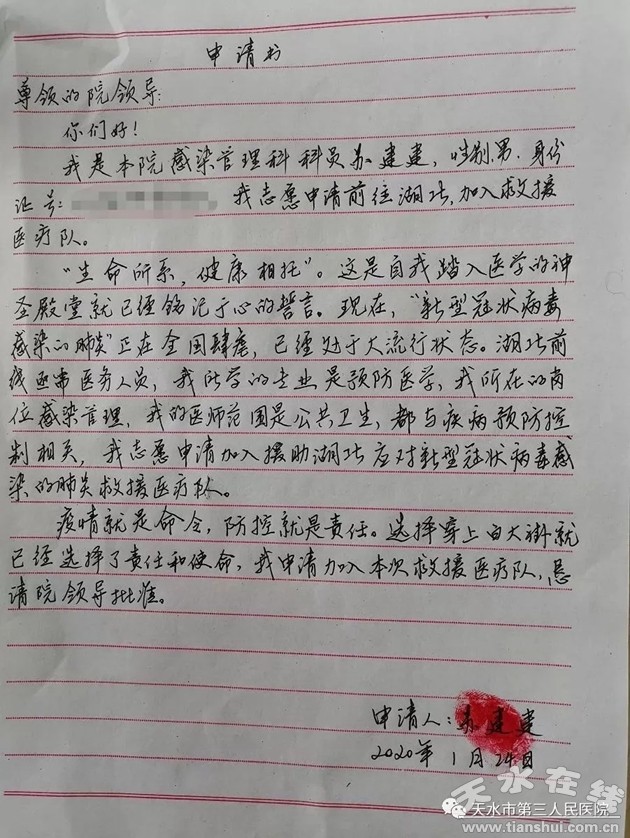 申请书
尊领的院领导:
你们好!
我是本院感染管理科科员苏建建,性别男.身份
证号: 我志愿申请前往湖北,加入救援
医疗队。
“生命所系,健康相托”。这是自我踏入医学的神
圣殿堂就已经铭记于心的誓言。现在,“新型冠状病毒
感染的肺炎”正在全国肆虐,已经处于大流行状态。湖北前
线亟需医务人员,我所学的专业是预防医学,我所在的岗
位感染管理,我的医师范围是公共卫生,都与疾病预防控
制相关,我志愿申请加入援助湖北应对新型冠状病毒感
染的肺炎救援医疗队。
疫情就是命令,防控就是责任。选择穿上白大褂就
已经选择了责任和使命,我申请加入本次救援医疗队,恳
请院领导批准。
申请人:苏建建
2020年1月24日
天水在线
天水市第三人民医院
www.tianshui.com.cn